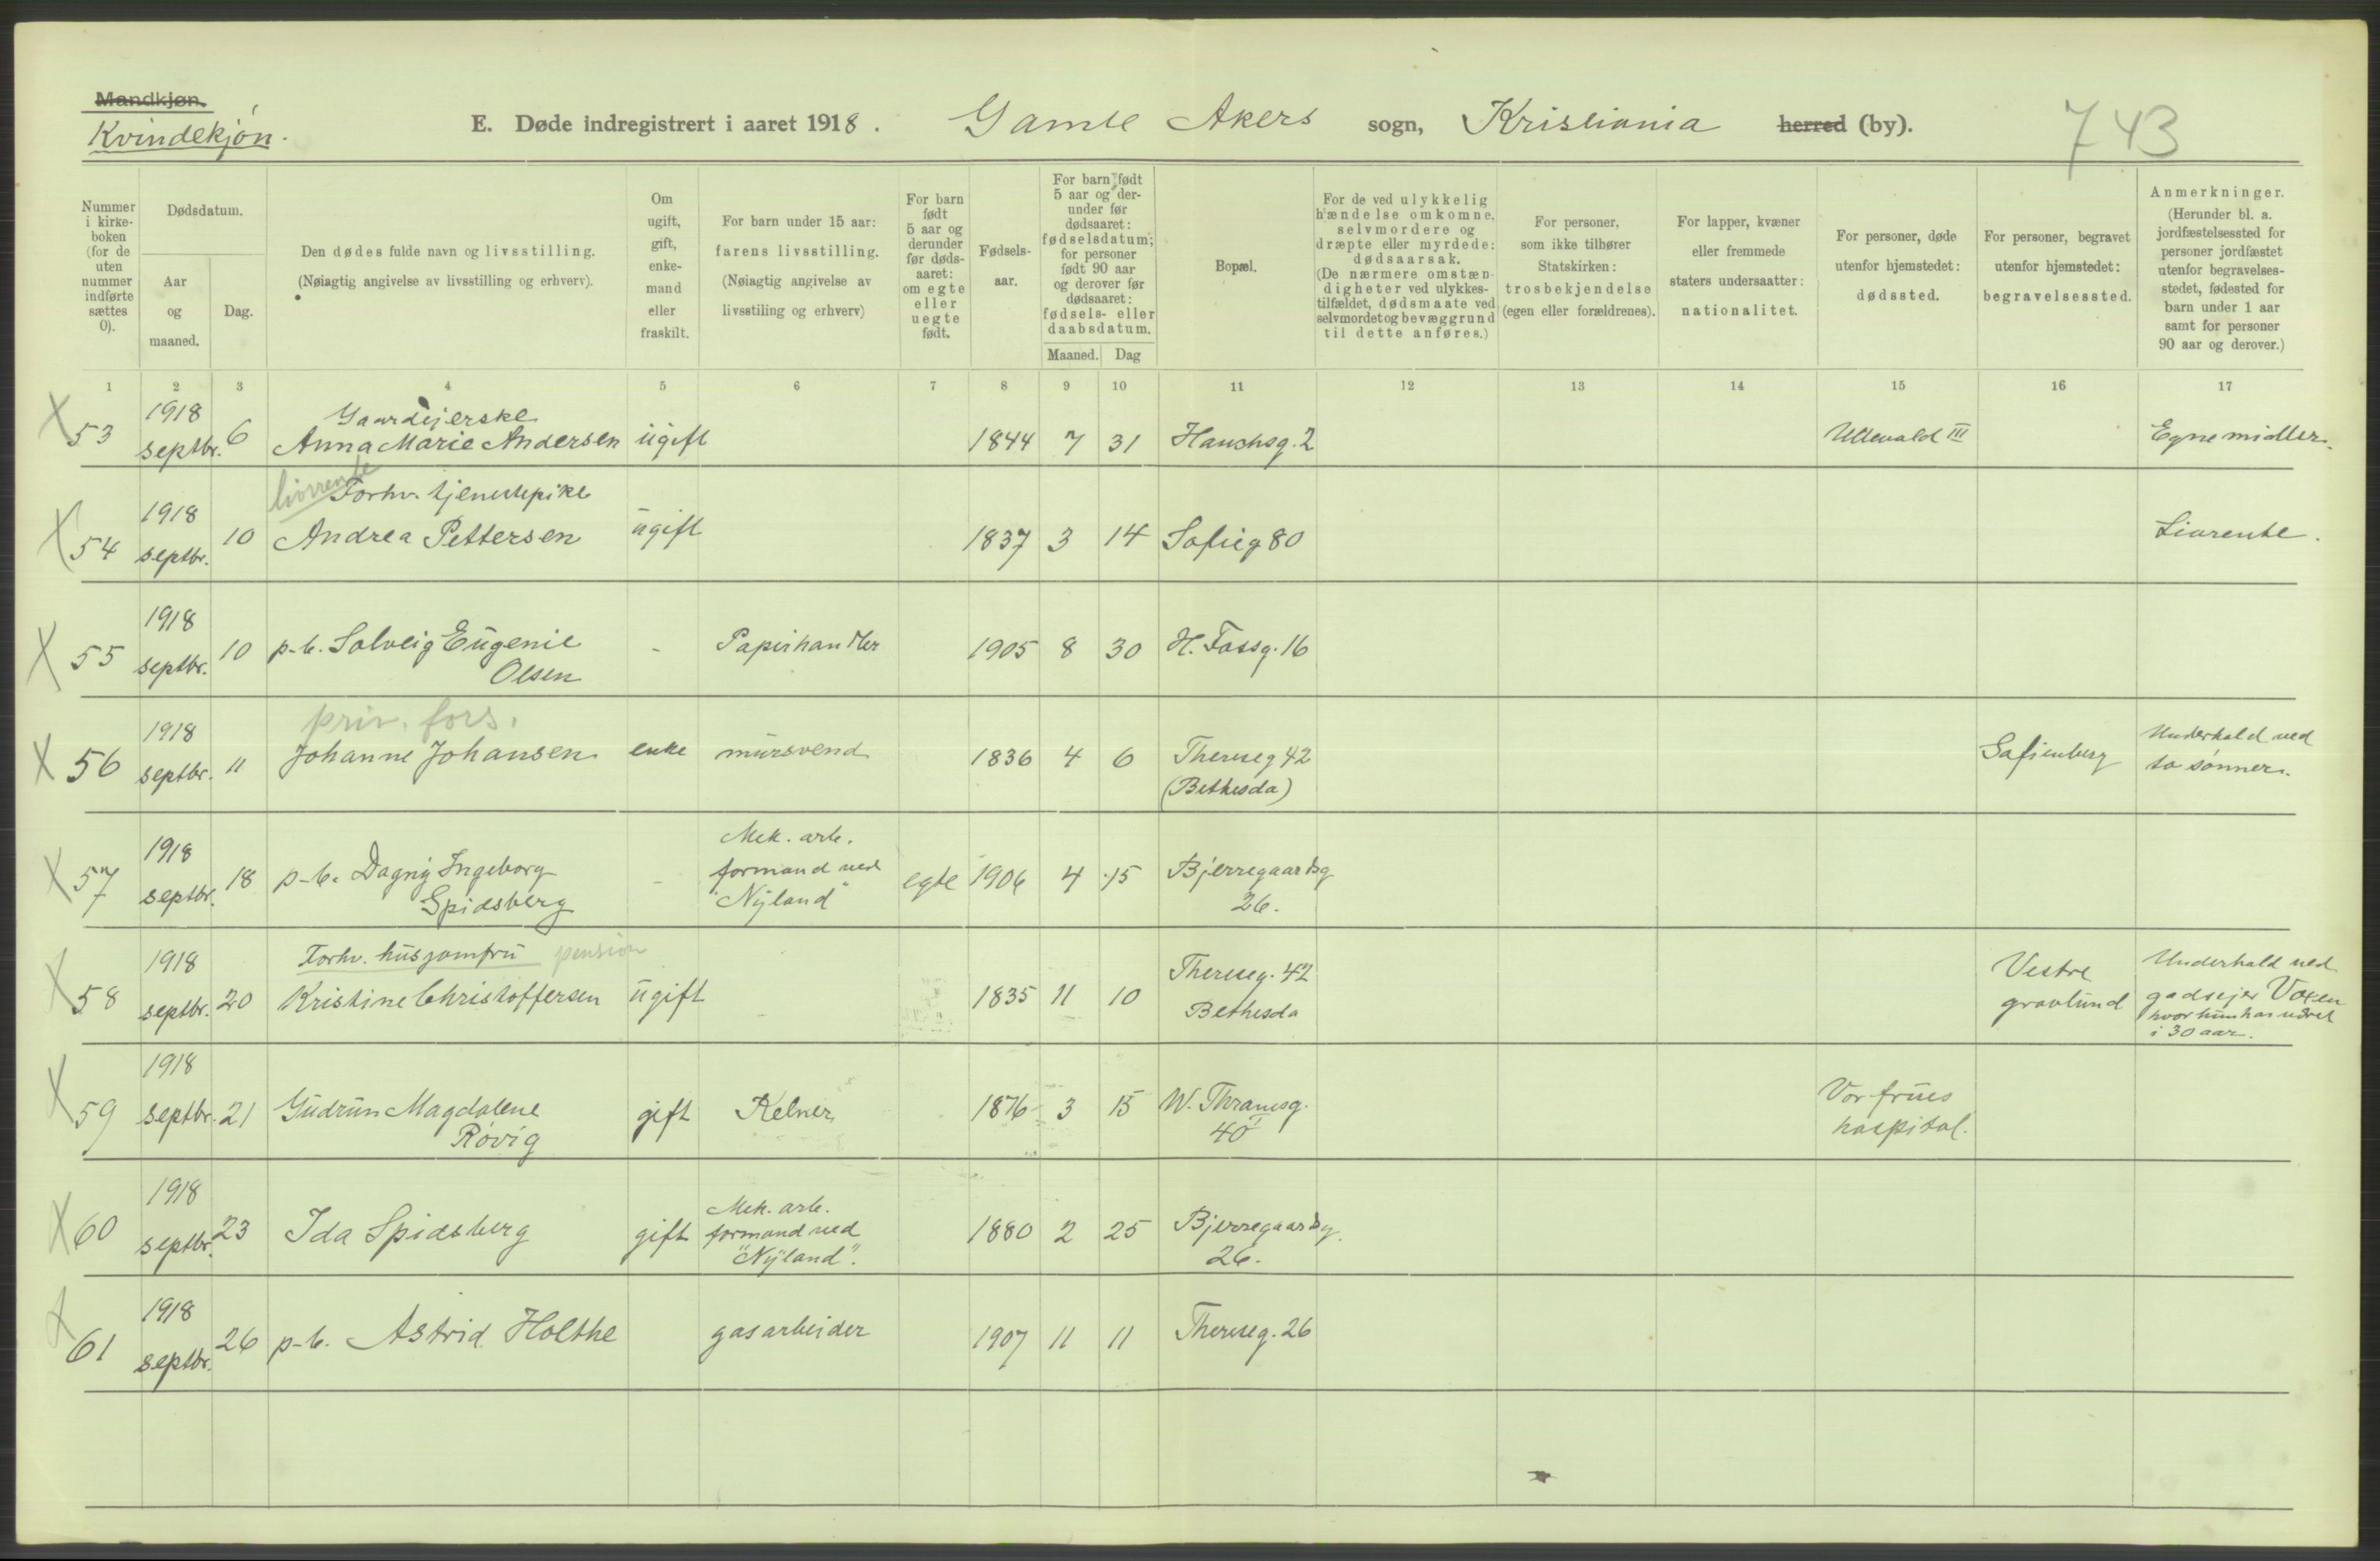 Mandkjøn.
Kvindekjøn.
E. Døde indregistrert i aaret 1918. Gamle Akers sogn, Kristiania herred (by).
743
Nummer i kirkeboken (for de uten nummer indførte sættes 0).
Dødsdatum.
Aar og maaned.
Dag.
Den dødes fulde navn og livsstilling.
(Nøiagtig angivelse av livsstilling og erhverv).
Om ugift, gift, enkemand eller fraskilt.
For barn under 15 aar: farens livsstilling.
(Nøiagtig angivelse av livsstiling og erhverv)
For barn født 5 aar og derunder før dødsaaret: om egte eller uegte født.
Fødselsaar.
For barn født 5 aar og derunder før dødsaaret: fødselsdatum; for personer født 90 aar og derover før dødsaaret: fødsels- eller daabsdatum.
Maaned. Dag
Bopæl.
For de ved ulykkelig hændelse omkomne, selvmordere og dræpte eller myrdede: dødsaarsak.
(De nærmere omstændigheter ved ulykkestilfældet, dødsmaate ved selvmordet og bevæggrund til dette anføres.)
For personer, som ikke tilhører Statskirken: trosbekjendelse (egen eller forældrenes).
For lapper, kvæner eller fremmede staters undersaatter: nationalitet.
For personer, døde utenfor hjemstedet: dødssted.
For personer, begravet utenfor hjemstedet: begravelsessted.
Anmerkninger.
(Herunder bl. a. jordfæstelsessted for personer jordfæstet utenfor begravelsesstedet, fødested for barn under 1 aar samt for personer 90 aar og derover.)
1 2 3 4 5 6 7 8 9 10 11 12 13 14 15 16 17
X 53 1918 septbr. 6 Gaardejerske
Anna Marie Andersen ugift 1844 7 31 Hauchsg. 2 Ullevold III Egne midler.
livrente
X 54 1918 septbr. 10 Forhv. tjenestepike
Andrea Pettersen ugift 1837 3 14 Sofieg 80 Livrente.
X 55 1918 septbr. 10 p-b. Solveig Eugenie
Olsen - Papirhandler 1905 8 30 H. Fossg. 16
priv. fors.
X 56 1918 septbr. 11 Johanne Johansen enke mursvend 1836 4 6 Thereseg 42
(Bethesda) Sofienberg Underhold ved
to sønner.
X 57 1918 septbr. 18 p-b. Dagny Ingeborg
Spidsberg - Mek. arb.
formand ved
"Nyland" egte 1906 4 15 Bjerregaardsg
26.
X 58 1918 septbr. 20 Forhv. husjomfru pension
Kristine Christoffersen ugift 1835 11 10 Thereseg. 42
Bethesda Vestre
gravlund Underhold ved
godsejer Voxen
hvor hun har været
i 30 aar.
X 59 1918 septbr. 21 Gudrun Magdalene
Røvig gift Kelner 1876 3 15 W. Thranesg.
40 Vor frues
hospital.
X 60 1918 septbr. 23 Ida Spidsberg gift Mek. arb.
formand ved
"Nyland". 1880 2 25 Bjerregaardsg.
26.
X 61 1918 septbr. 26 p-b. Astrid Holthe gasarbeider 1907 11 11 Thereseg. 26